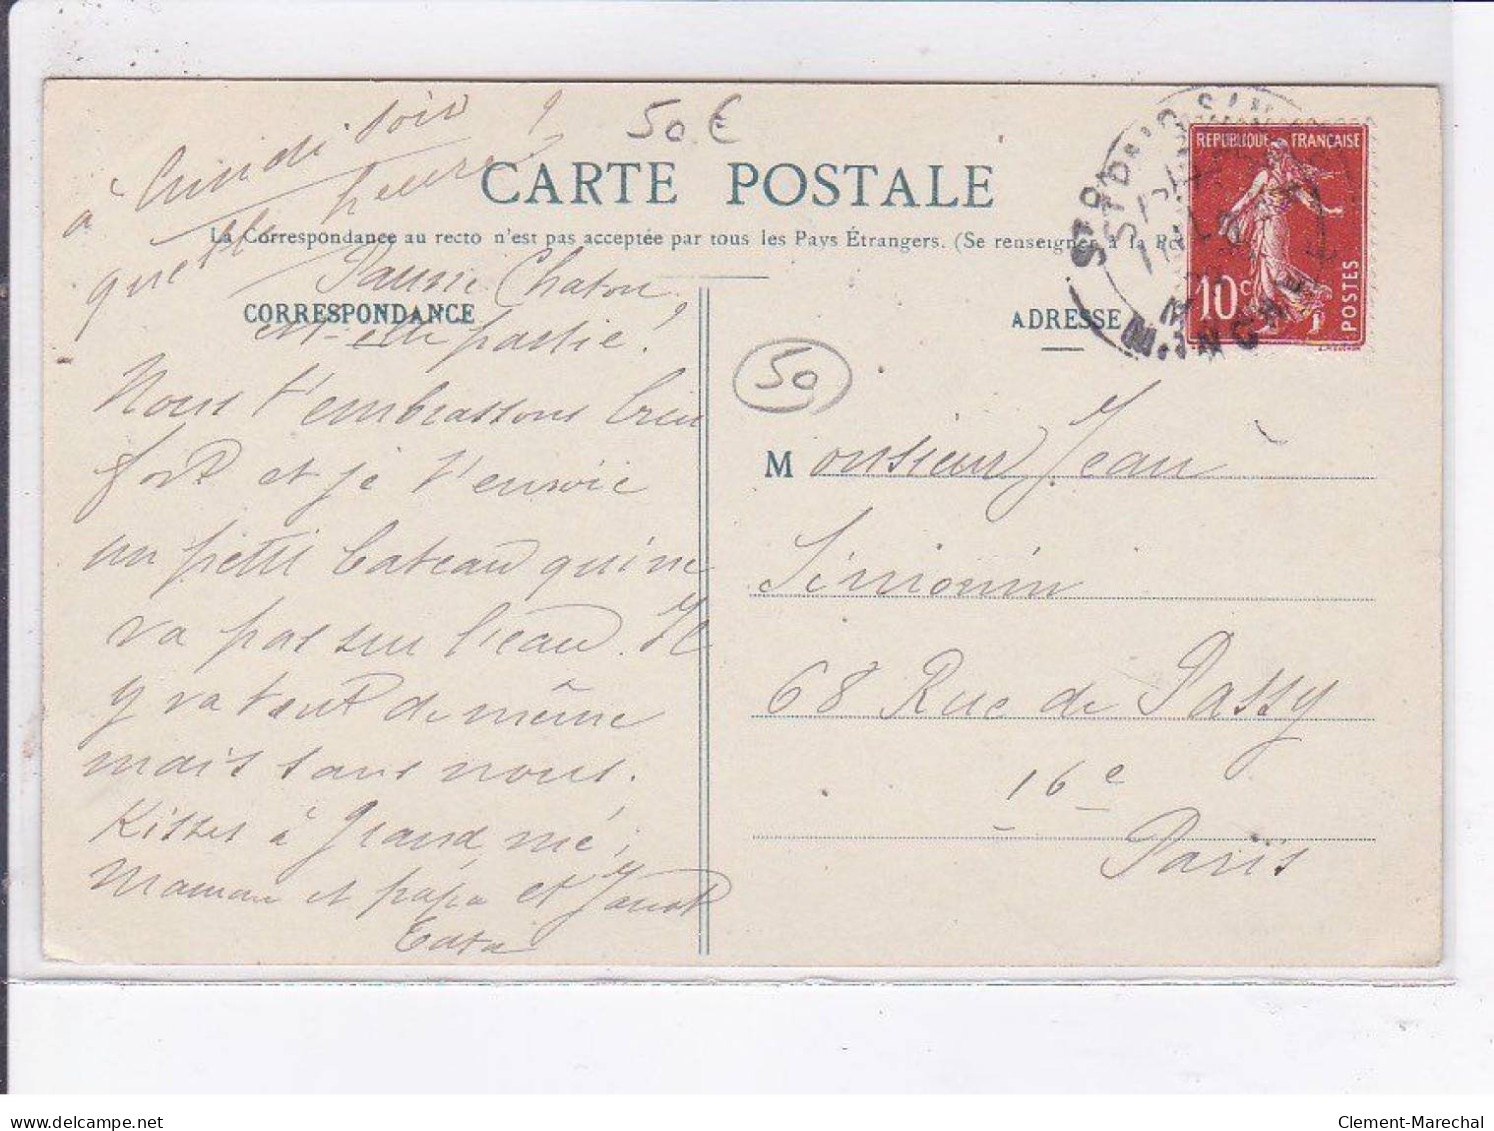 50 €
CARTE POSTALE
La Correspondance au recto n'est pas acceptée par tous les Pays Étrangers. (Se renseigner à la
CORRESPONDANCE
ADRESSE
RÉPUBLIQUE FRANÇAISE
10c
POSTES
50
à lundi soir ?
quelle heure ?
Chaton
est-elle partie !
Nous t'embrassons bien
fort et je t'envoie
un petit bateau qui ne
va pas sur l'eau. Il
y va tout de même
mais sans nous.
Kisses à Grand mé,
Maman et papa et Janot
Tata
Monsieur Jean
Simonin
68 Rue de Passy
16e
Paris
delcampe.net
Clement-Marechal